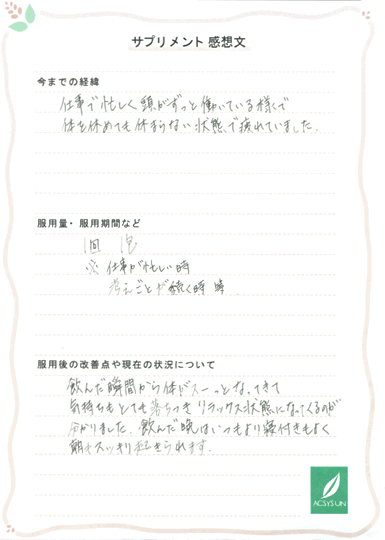 サプリメント 感想文
今までの経緯
仕事で忙しく頭がずっと働いている様で
体を休めても休まらない状態で疲れていました。
服用量・服用期間など
1回 1包
※ 仕事が忙しい時
考えごとが続く時 時
服用後の改善点や現在の状況について
飲んだ瞬間から体がスーっとなってきて
気持ちもとても落ちつきリラックス状態になってくるのが
分かりました。飲んだ晩はいつもより寝付きもよく
朝もスッキリ起きられます。
ACSYSUN